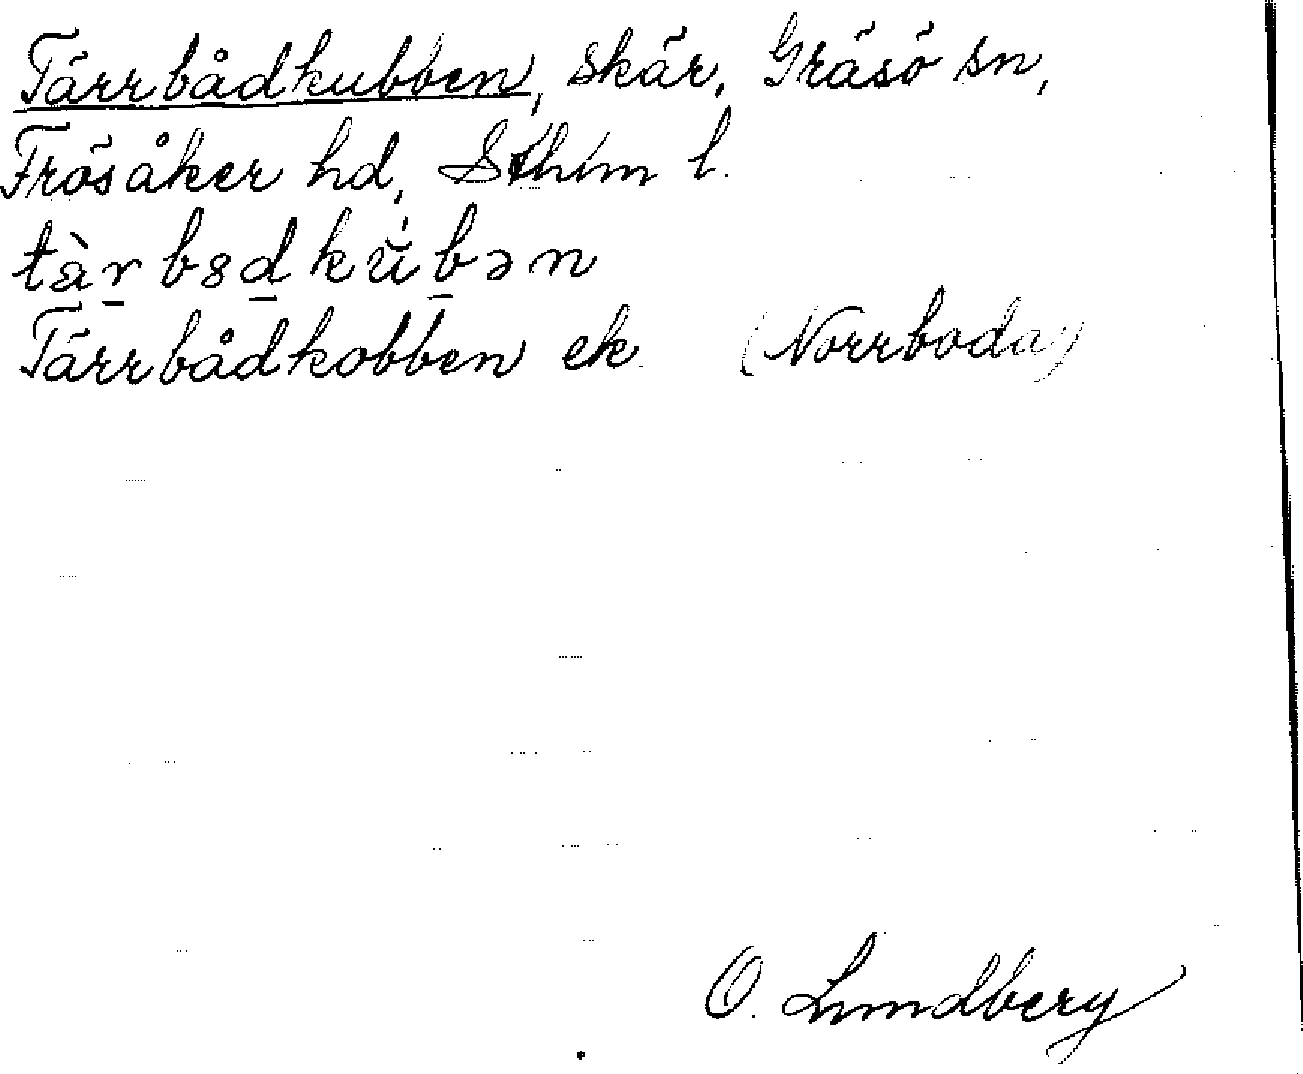 Tärrbådkubben, skär, Gräsö sn,
Frösåker hd, Sthlm l.
tà̱ṟbsḏkŭ̀ḇən
Tärrbådkobben ek. (Norrboda)
O. Lundberg